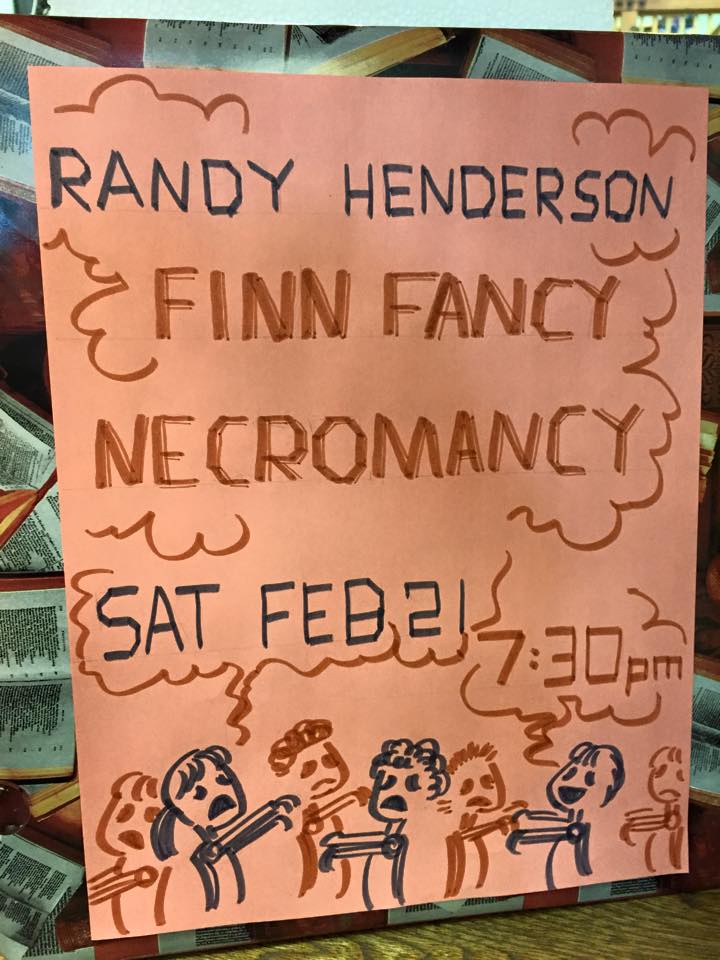 RANDY HENDERSON
FINN FANCY
NECROMANCY
SAT FEB 21
7:30pm